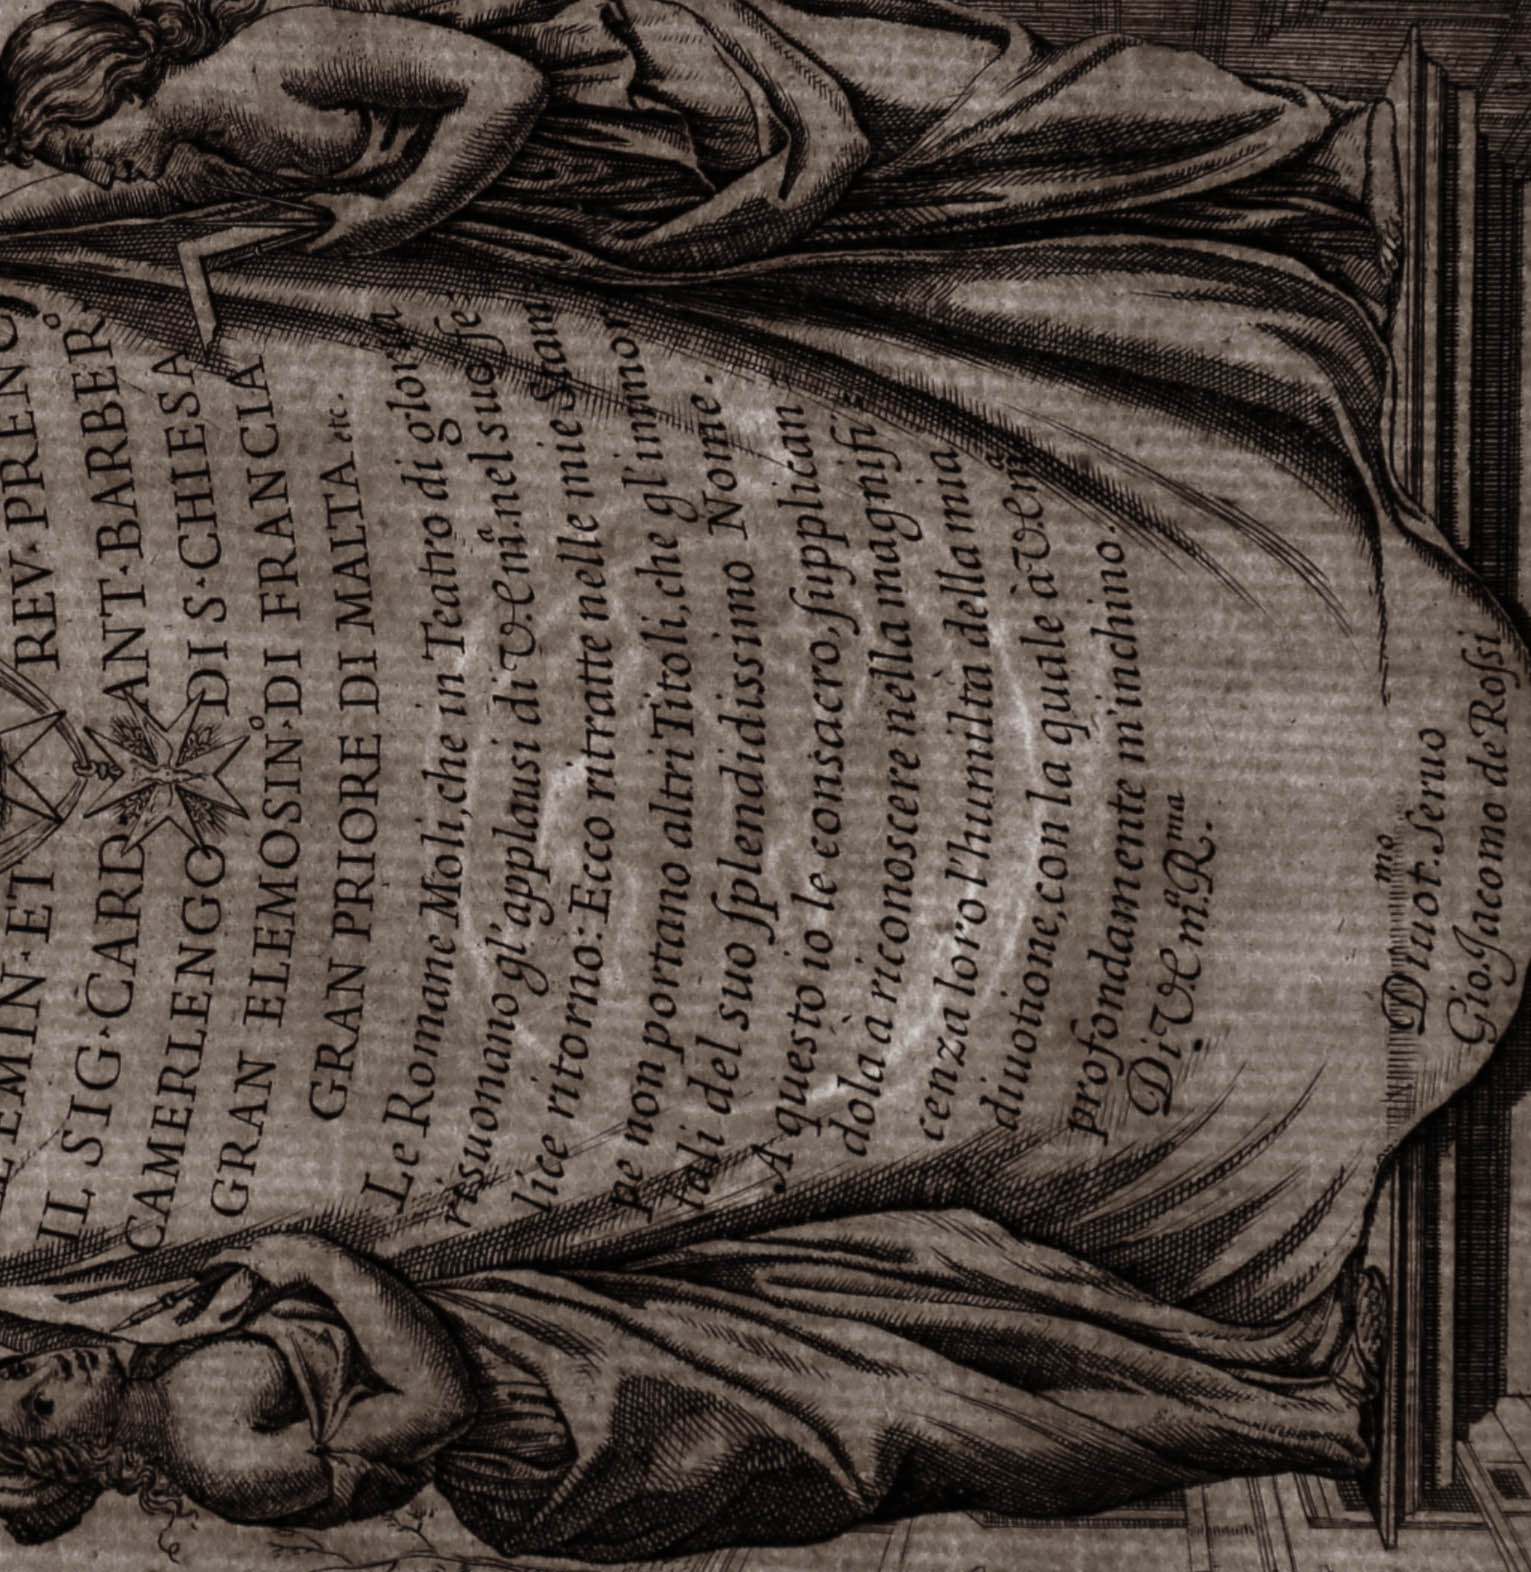 EMIN·ET REV·PREN
IL SIG·CARD ANT·BARBER.º
CAMERLENGO DI S·CHIESA
GRAN ELEMOSINº·DI FRANCIA
GRAN PRIORE DI MALTA etc.
Le Romane Moli, che in Teatro di gloria
risuonano gl'applausi di V. Emã. nel suo fe:
lice ritorno: Ecco ritratte nelle mie Stam:
pe non portano altri Titoli, che gl'immor
tali del suo ſplendidissimo Nome.
A questo io le consacro, ſupplican
dola a riconoscere nella magnifi:
cenza loro l'humiltà della mia
diuotione, con la quale à V. Emã
profondamente m'inchino.
Di V. Emã. R.ma
Diuot.mo Seruo
Gio. Jacomo de Roſsi